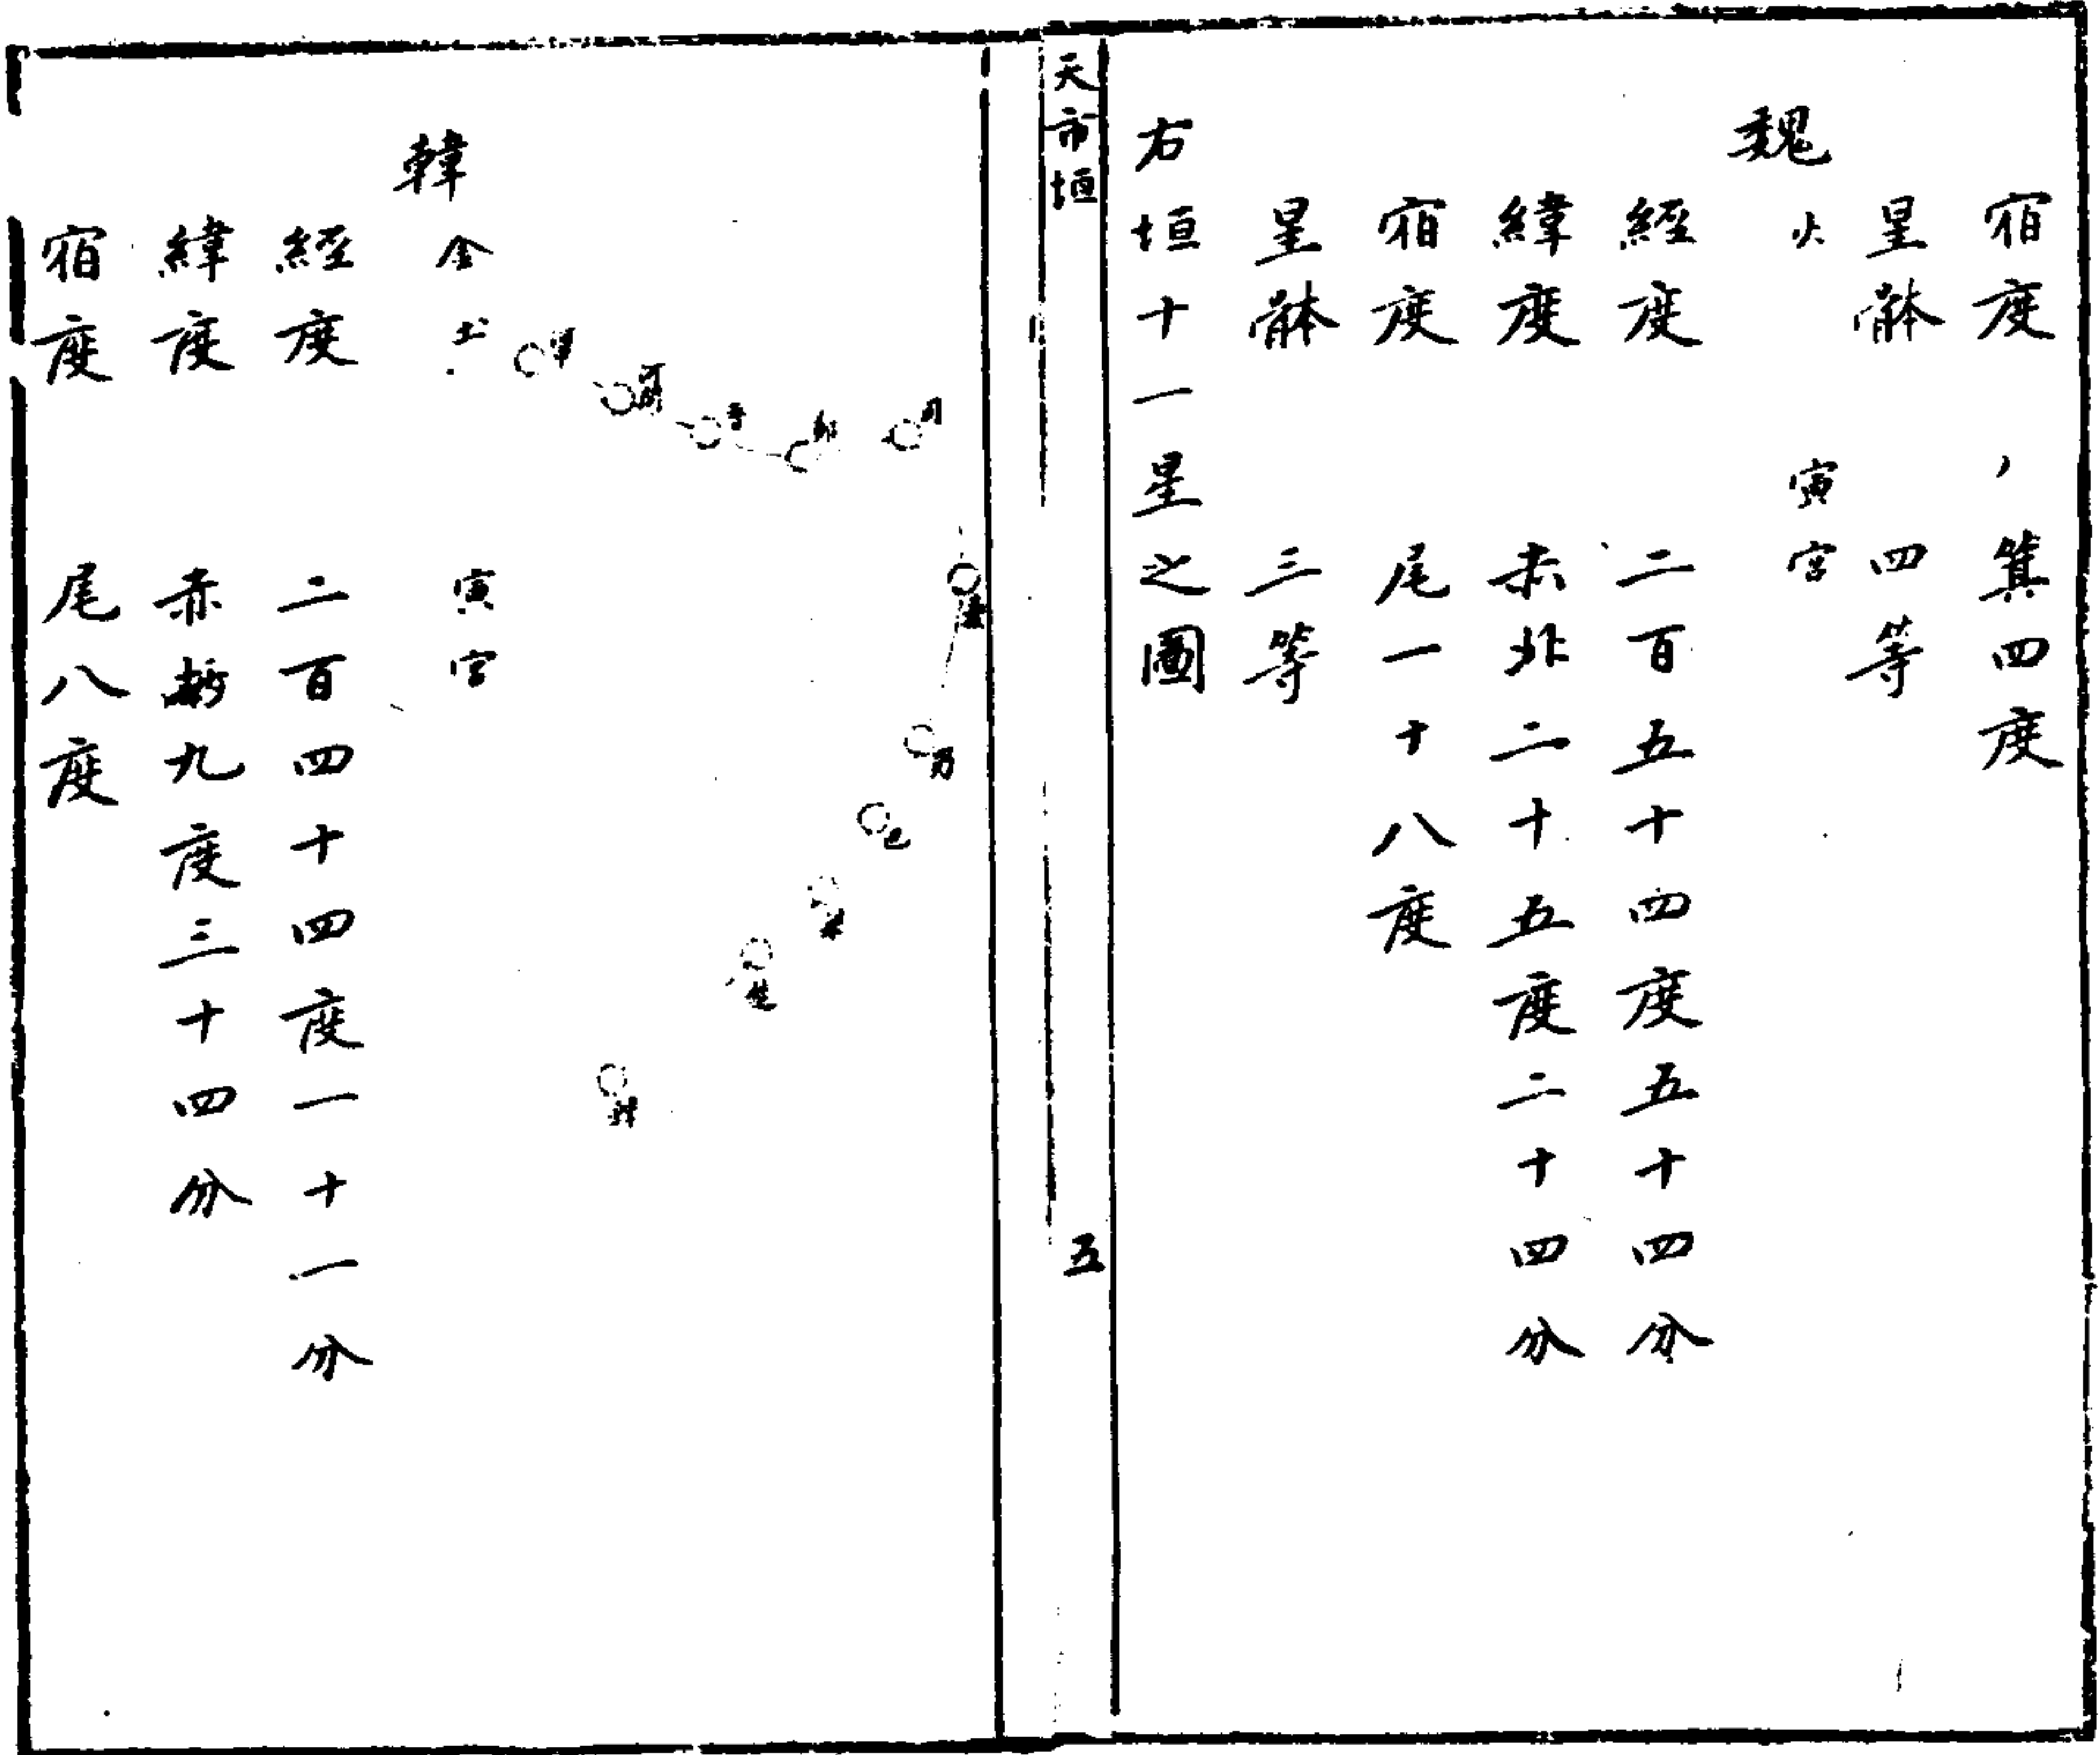 宿度 箕四度
星體 四等
魏 火 寅宮
經度 二百五十四度五十四分
緯度 赤北二十五度二十四分
宿度 尾一十八度
星體 三等
右垣十一星之圖
天市垣 五
韓 金土 寅宮
經度 二百四十四度一十一分
緯度 赤 九度三十四分
宿度 尾八度